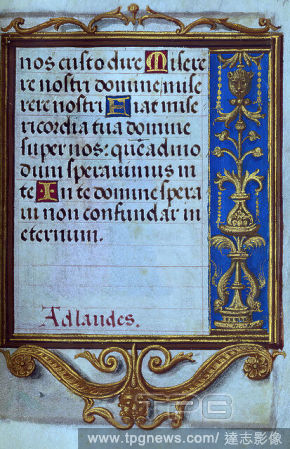 nos custodire Misere
re nostri domine mise
rere nostri Fiat mise
ricordia tua domine
super nos: quē admo
dum speravimus in
te In te domine spera
vi non confundar in
eternum.
Ad laudes.
TPG
www.tpgnews.com/ 達志影像